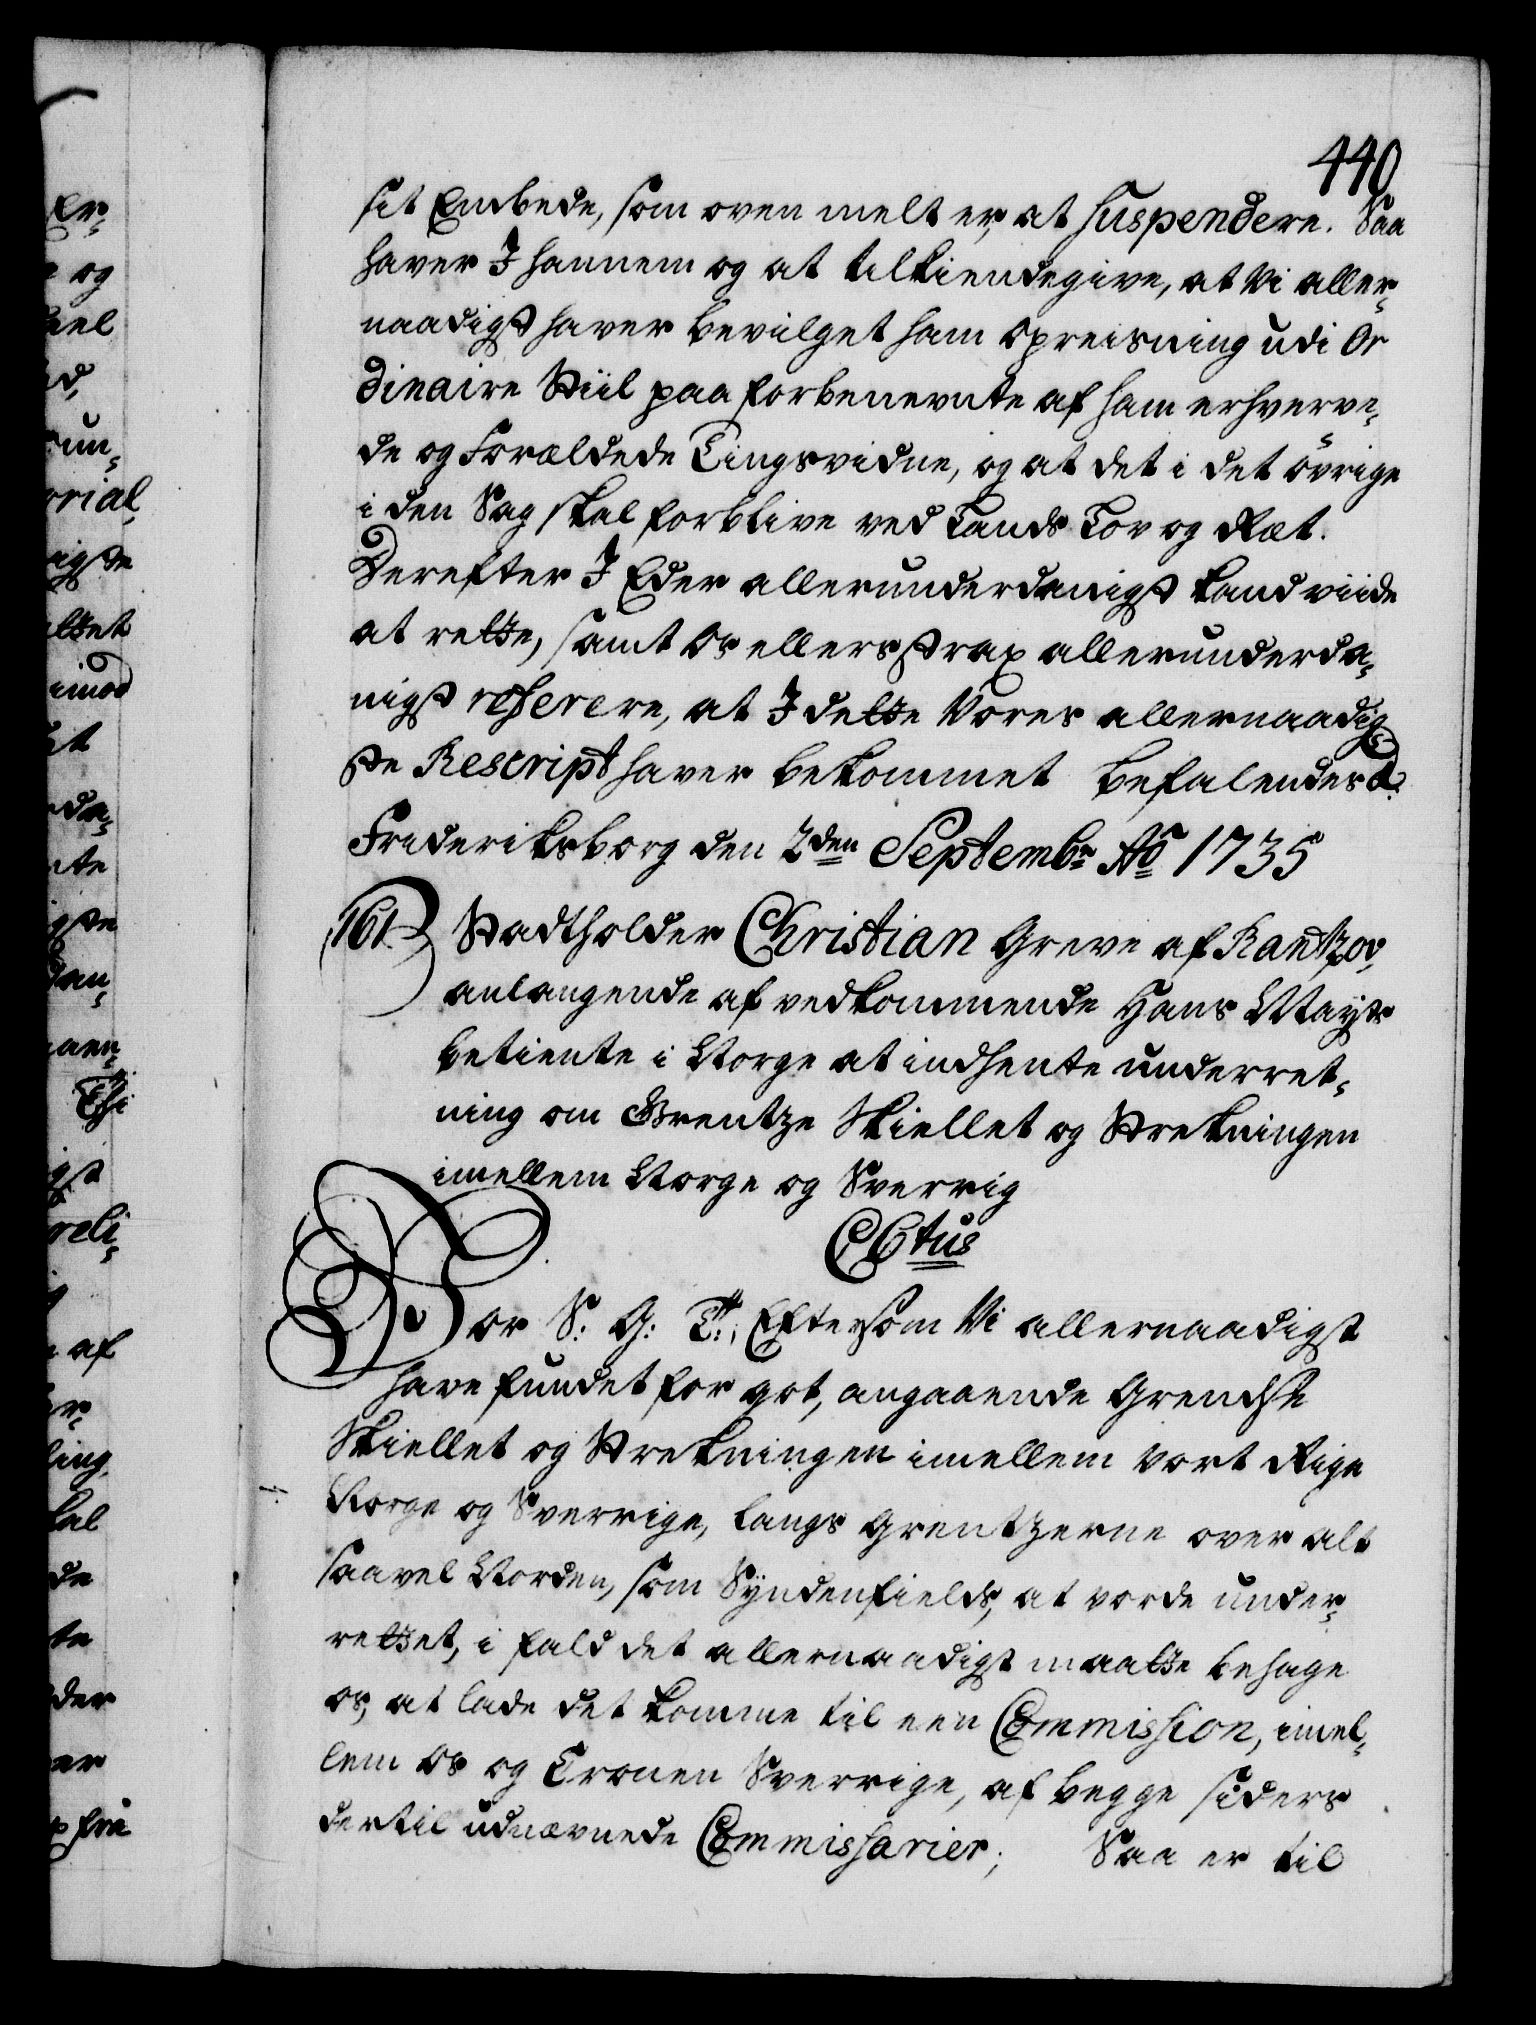 440
sit Embede, som oven melt er, at suspendere. Saa
haver I hannem og at tilkiendegive, at Vi aller-
naadigst haver bevilget ham Opreisning udi Or
dinaire Stiil paa forbenevnte af ham erhverve-
de og Forældede Tingsvidne, og at det i det övrige
i den Sag skal forblive ved Lands Lov og Ræt.
Derefter I Eder allerunderdanigst kand viide
at rette, samt Os ellers strax allerunderda-
nigst referere, at I dette Vores allernaadig
ste Rescript haver bekommet Befalendes
Frideriksborg den 2den Septembr Ao 1735
161. Stadtholder Christian Greve af Rantzov,
anlangende af vedkommende Hans Mayts
betiente i Norge at indhente underret-
ning om Grentze Skiellet og Strekningen
imellem Norge og Sverrig
C 6tus
Vor S: G: T:, Eftersom Vi allernaadigst
have fundet for got, angaaende Grendse
Skiellet og Strekningen imellem vort Rige
Norge og Sverrige, langs Grentzerne over alt
saavel Norden, som Syndenfields, at vorde under-
rettet, i fald det allernaadigst maatte behage
os, at lade det komme til een Commission, imel-
lem Os og Cronen Sverrige, af begge siders
dertil udnævnede Commissarier; Saa er til
er-
og
eel
d,
un-
orial,
igste
ttet
imod
it
da-
nte
gste
dan-
aaen-
Thi
igst
reli-
af
er-
ling,
kal
de
te
der
er
fra